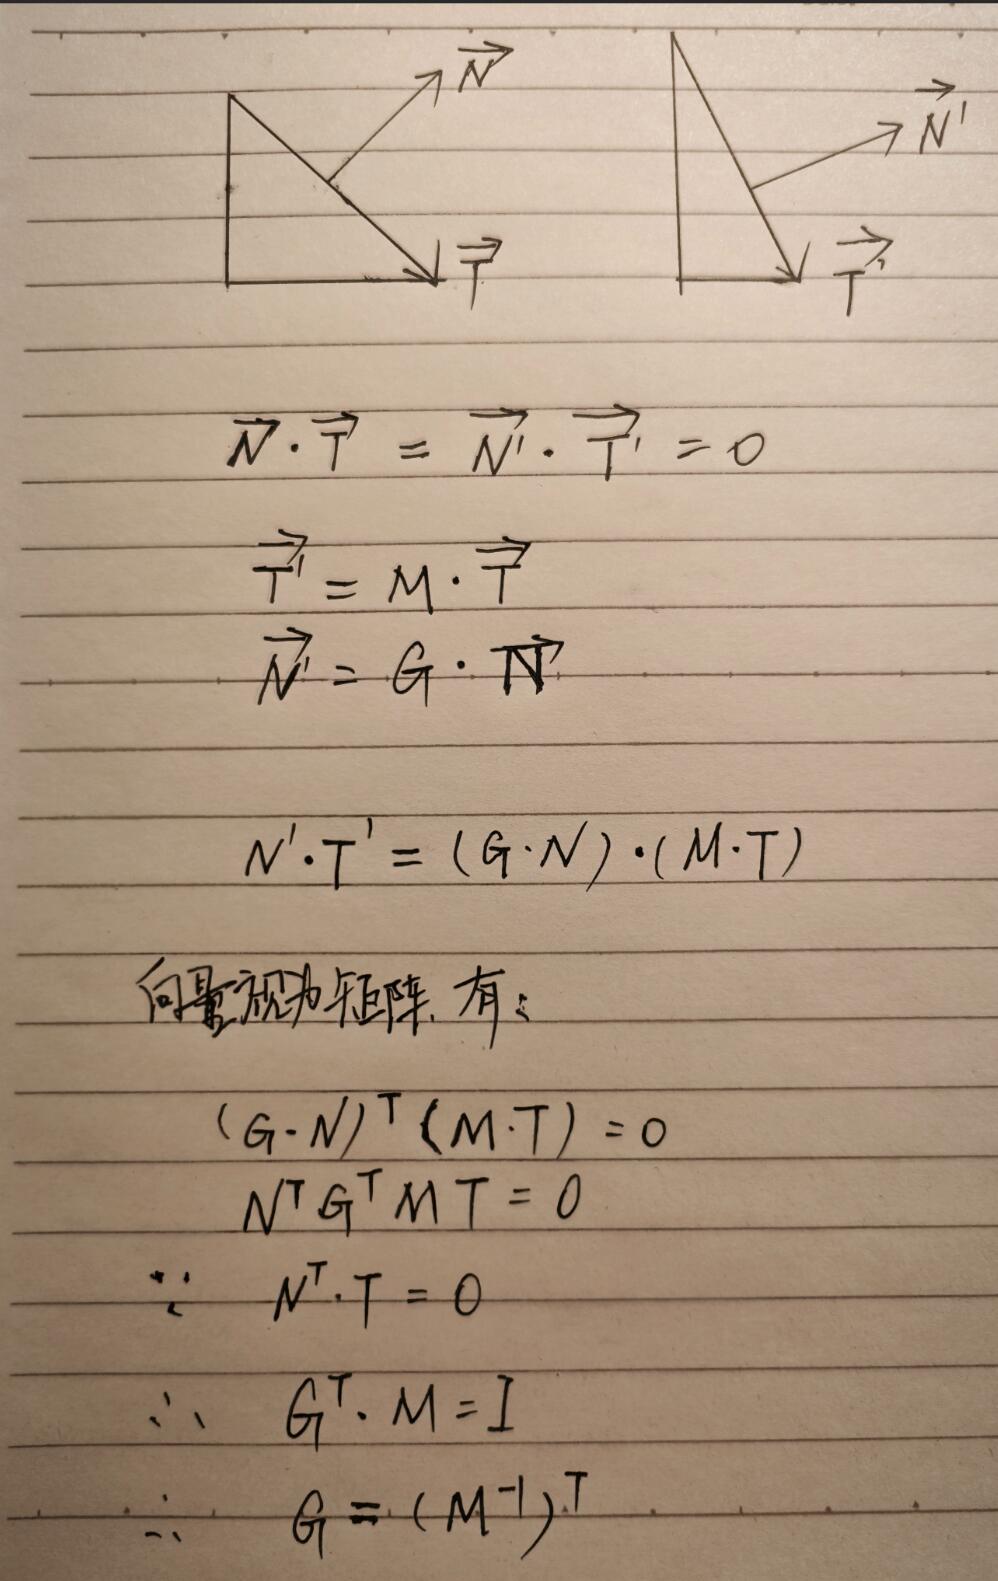 N⃗ N⃗'
T⃗ T⃗'
N⃗ · T⃗ = N⃗' · T⃗' = 0
T⃗' = M · T⃗
N⃗' = G · N⃗
N' · T' = (G·N) · (M·T)
向量视为矩阵, 有:
(G·N)ᵀ (M·T) = 0
Nᵀ Gᵀ M T = 0
∵ Nᵀ · T = 0
∴ Gᵀ · M = I
∴ G = (M⁻¹)ᵀ